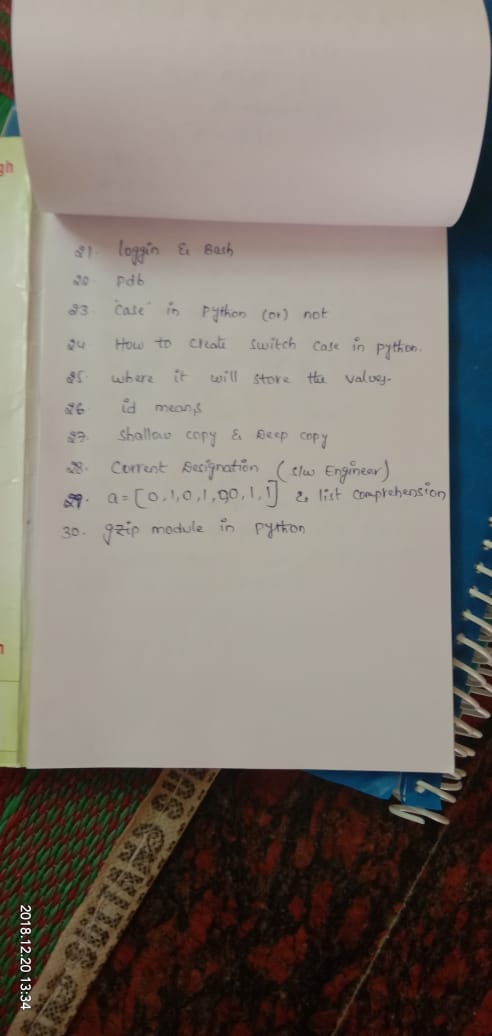 gh
21. loggin & Bash
20 pdb
23. "case" in Python (or) not
24 How to create switch case in python.
25. where it will store the values.
26. id means
27. shallow copy & Deep copy
28. Current Designation (s/w Engineer)
29. a = [0,1,0,1,0,0,1,1] & list comprehension
30. gzip module in python
2018.12.20 13:34